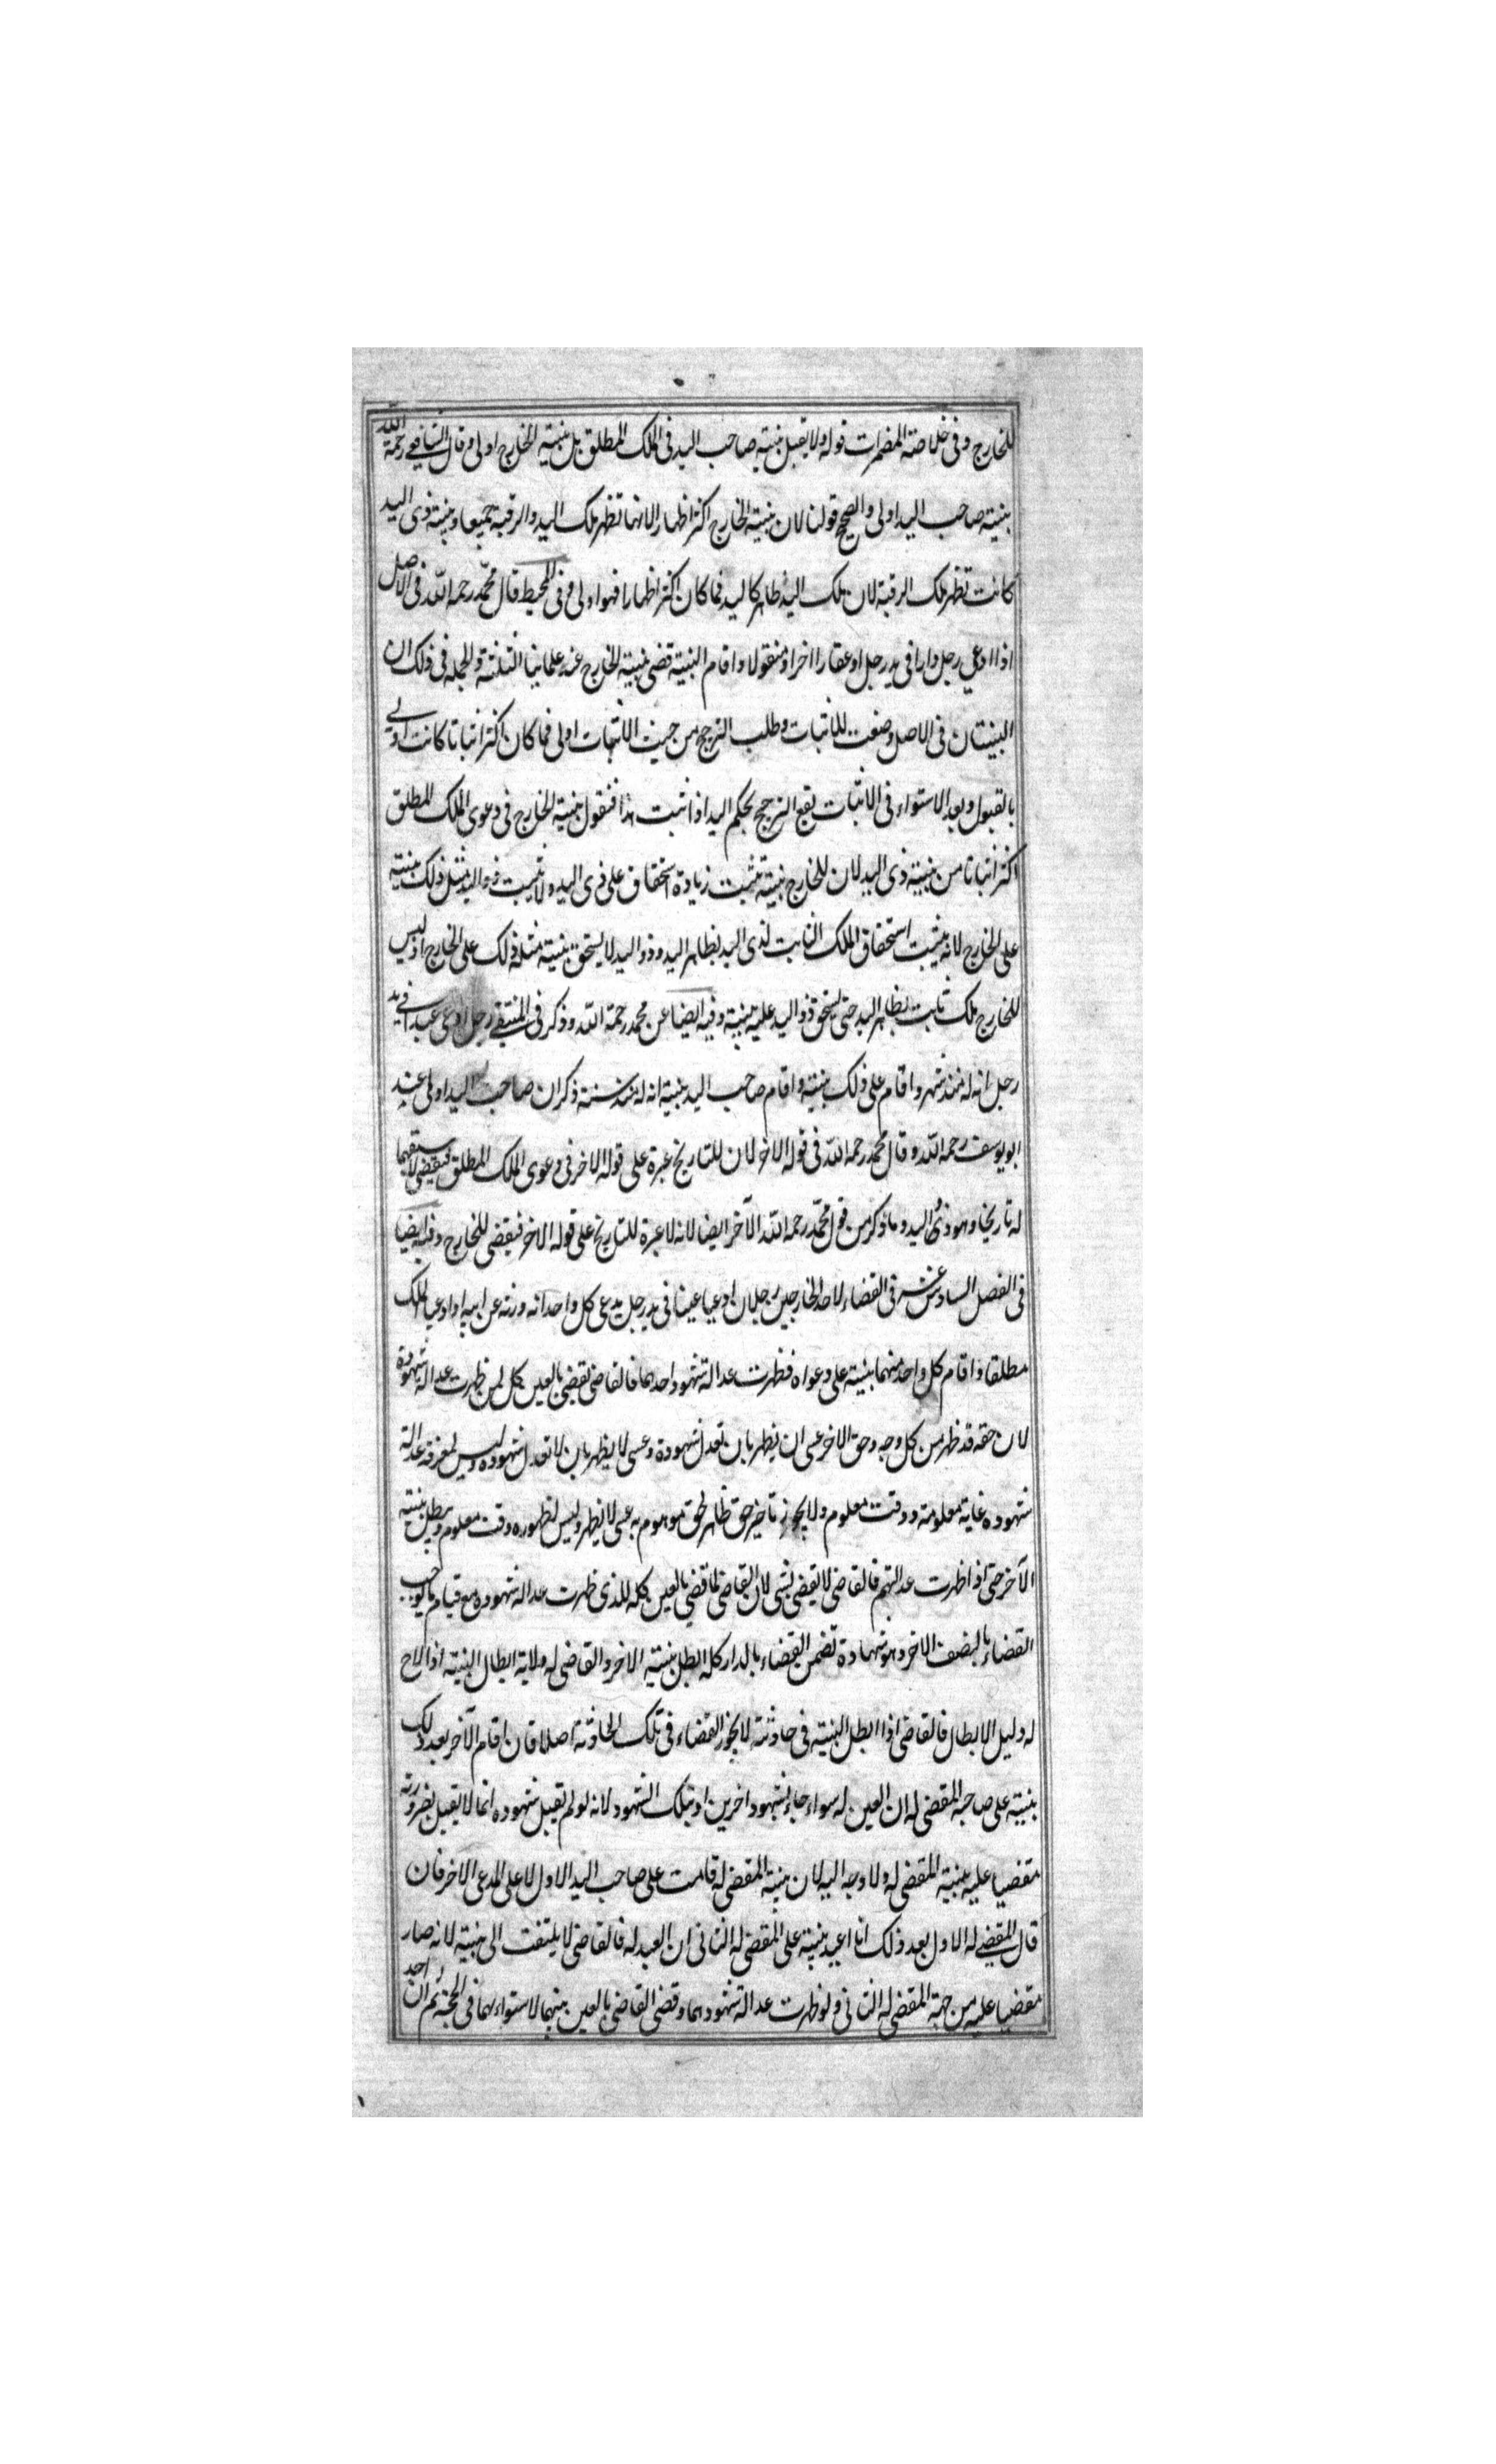 للخارج وفى خلاصة المضمرات قوله ولا يقبل بنية صاحب اليد فى الملك المطلق بل بنية الخارج اولى وقال الشافعى رحمة الله
بنية صاحب اليد اولى والصحيح قولنا لان بنية الخارج اكثر اظهارا لانها تظهر ملك اليد والرقبة جميعا وبنية ذى اليد
كانت تظهر ملك الرقبة لان ملك اليد ظاهر كاليد فما كان اكثر اظهارا فهو اولى وفى المحيط قال محمد رحمه الله فى الاصل
اذا ادعى رجل دارا فى يد رجل او عقارا اخر او منقولا واقام البنية قضى ببنية الخارج عند علمائنا الثلثة والجملة فى ذلك ان
البينتان فى الاصل وضعت للاثبات وطلب الترجيح من حيث الاثبات اولى فما كان اكثر اثباتا كانت اولى
بالقبول وبعد الاستواء فى الاثبات يقع الترجيح بحكم اليد اذا ثبت هذا فنقول بنية الخارج فى دعوى الملك المطلق
اكثر اثباتا من بنية ذى اليد لان للخارج بنية تثبت زيادة استحقاق على ذى اليد ولا يثبت ذو اليد مثل ذلك ببنية
على الخارج لانه يثبت استحقاق الملك الثابت لذى اليد بظاهر اليد وذو اليد لا يستحق ببنية مثل ذلك على الخارج اذ ليس
للخارج ملك ثابت بظاهر اليد حتى يستحق ذو اليد عليه ببنية وفيه ايضا عن محمد رحمة الله وذكر فى المنتقى رجل ادعى عبدا فى يد
رجل انه له منذ شهر واقام على ذلك بنية واقام صاحب اليد بنية انه له منذ سنة ذكر ان صاحب اليد اولى عند
ابو يوسف رحمه الله وقال محمد رحمه الله فى قوله الاخر لان للتاريخ عبرة على قوله الاخر فى دعوى الملك المطلق فيقضى لاسبقهما
له تاريخا وهو ذى اليد وما ذكر من قول محمد رحمه الله الآخر ايضا لانه لا عبرة للتاريخ على قوله الاخر فيقضى للخارج وفيه ايضا
فى الفصل السادس عشر فى القضاء لاحد الخارجين رجلان ادعيا عينا فى يد رجل يدعى كل واحد انه ورثه عن ابيه او ادعيا الملك
مطلقا واقام كل واحد منهما بنية على دعواه فظهرت عدالة شهود احدهما فالقاضى يقضى بالعين كل لمن ظهرت عدالة شهوده
لان حقه قد ظهر من كل وجه وحق الاخر عسى ان يظهر بان تعدل شهوده وعسى لا يظهر بان لا تعدل شهوده وليس لمعرفة عدالة
شهوده غاية معلومة ووقت معلوم ولا يجوز تاخير حق ظاهر لحق موهوم به عسى لا يظهر وليس لظهوره وقت معلوم ويبطل بنية
الآخر حتى اذا ظهرت عدالتهم فالقاضى لا يقضى بشى لان القاضى لما قضى بالعين كله للذى ظهرت عدالة شهوده مع قيام ما يوجب
القضاء بالنصف الاخر وهو شهادة تضمن القضاء بالدار كله ابطل بنية الاخر والقاضى له ولاية ابطال البنية اذا لاح
له دليل الابطال فالقاضى اذا ابطل البنية فى حادثة لا يجوز القضاء فى تلك الحادثة اصلا فان اقام الآخر بعد ذلك
بنية على صاحبه المقضى له ان العين له سواء جاء بشهود اخرين او بتلك الشهود لانه لو لم تقبل شهوده انما لا يقبل لضرورته
مقضيا عليه ببنية المقضى له ولا وجه اليه لان بنية المقضى له قامت على صاحب اليد الاول لا على المدعى الاخر فان
قال المقضى له الاول بعد ذلك انا اعيد بنية على المقضى له الثانى ان العبد له فالقاضى لا يلتفت الى بنية لانه صار
مقضيا عليه من جهة المقضى له الثانى ولو ظهرت عدالة شهودهما وقضى القاضى بالعين بينهما لاستواءهما فى الحجة ثم ان احد